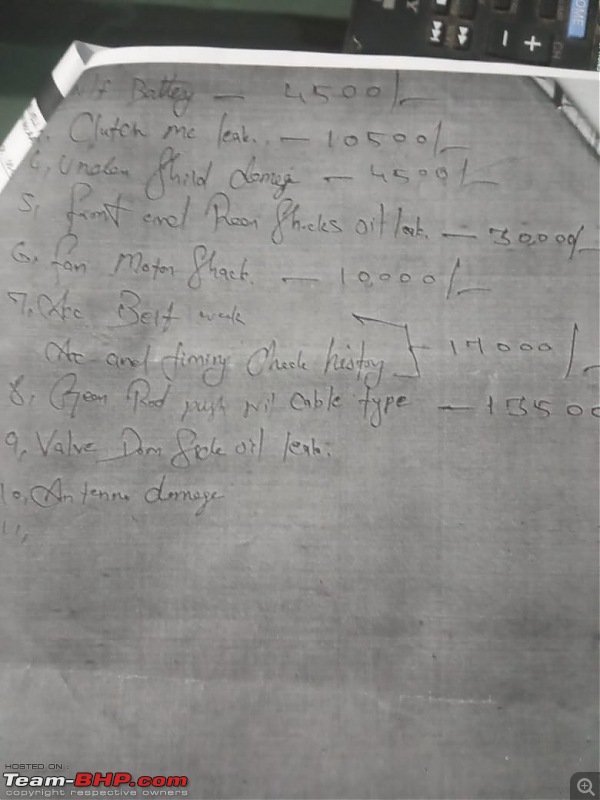 Battery — 4500/-
Clutch mc leak. — 10500/-
damage — 4500/-
5, front and Rear Shocks oil leak. — 30,000/-
6, fan Motor Shack. — 10,000/-
7, Acc Belt weak
Ac and timing Check history } — 17000/-
8, Gear Rod cable type — 13500
9, Valve Dom Side oil leak.
10, Antenna damage
11,
HOME
HOSTED ON :
Team-BHP.com
copyright respective owners